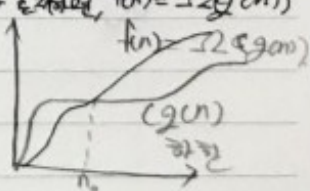 f(n) = Ω(g(n))
f(n) = Ω(g(n))
(g(n)
하한
n₀